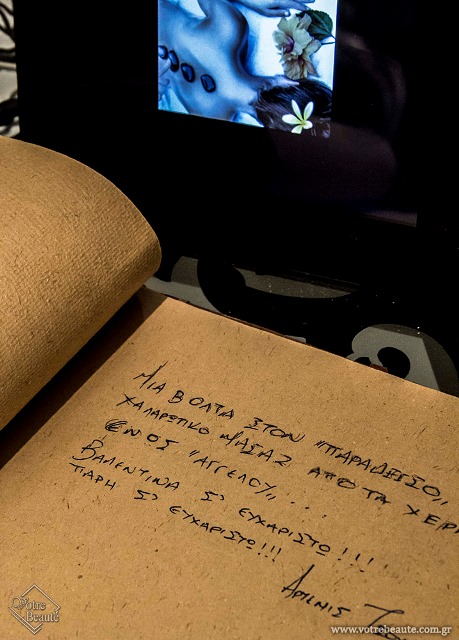 ΜΙΑ ΒΟΛΤΑ ΣΤΟΝ "ΠΑΡΑΔΕΙΣΟ"
ΧΑΛΑΡΩΤΙΚΟ ΜΑΣΑΖ ΑΠΟ ΤΑ ΧΕΡΙ
ΕΝΟΣ "ΑΓΓΕΛΟΥ"...
ΒΑΛΕΝΤΙΝΑ Σ' ΕΥΧΑΡΙΣΤΩ!!!
ΠΑΡΗ Σ' ΕΥΧΑΡΙΣΤΩ!!!
Votre Beauté
www.votrebeaute.com.gr